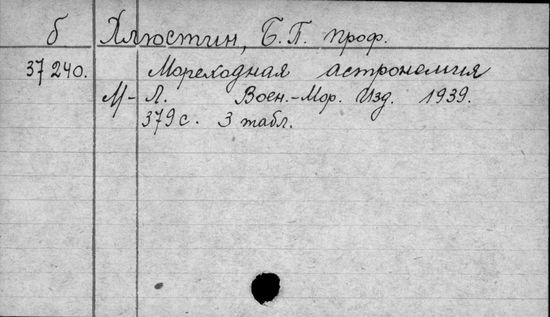 б Хлюстин, Б.П. проф.
37240. Мореходная астрономия
М-Л. Воен.-Мор. Изд. 1939.
379 с. 3 табл.